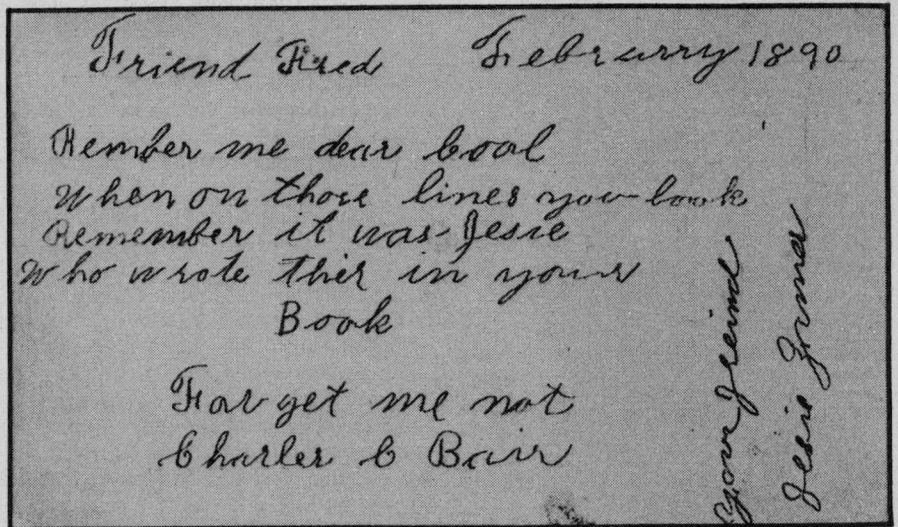 Friend Fred Februarry 1890
Rember me dear
When on those lines you look
Remember it was Jesie
Who wrote this in your
Book
Forget me not
Charles C Bair
Your Freind
Jesie